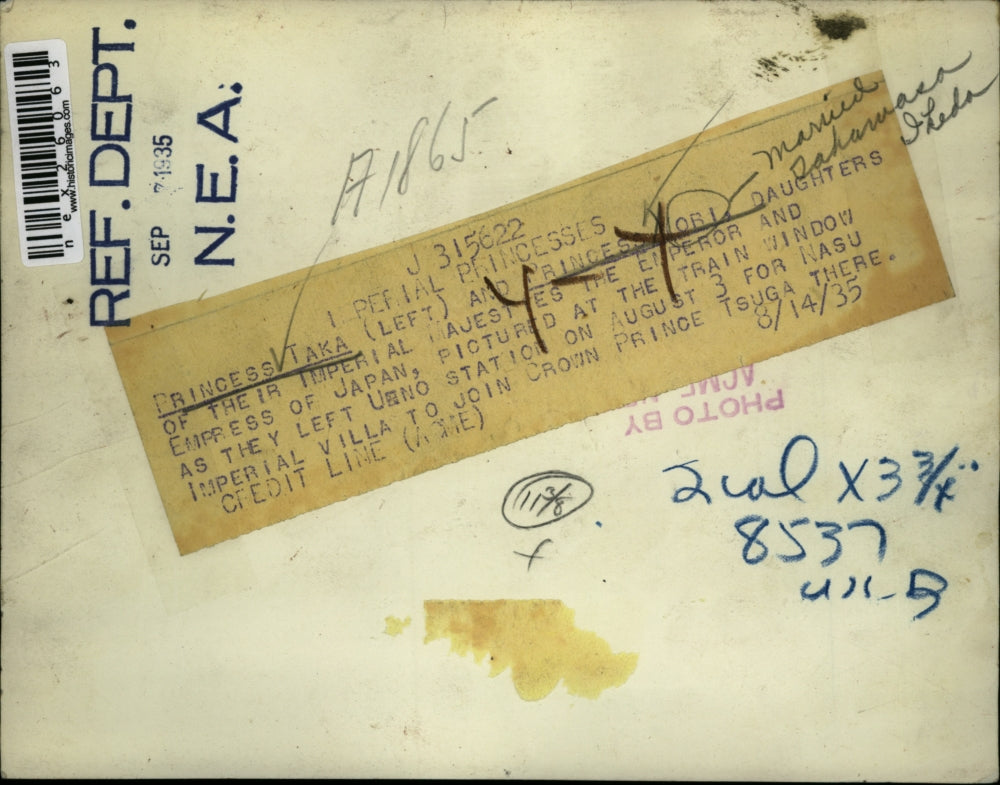 REF. DEPT.
SEP 7 1935
N.E.A.
nex2606063
www.historicimages.com
A1865
Married
Takamasa
Ikeda
J 315622
I PERIAL PRINCESSES
PRINCESS TAKA (LEFT) AND PRINCESS YORI, DAUGHTERS
OF THEIR IMPERIAL MAJESTIES THE EMPEROR AND
EMPRESS OF JAPAN, PICTURED AT THE TRAIN WINDOW
AS THEY LEFT UENO STATION ON AUGUST 3 FOR NASU
IMPERIAL VILLA TO JOIN CROWN PRINCE TSUGA THERE.
CREDIT LINE (ACME) 8/14/35
4-4
PHOTO BY
ACME
11 3/8
x
2 col X 3 3/4"
8537